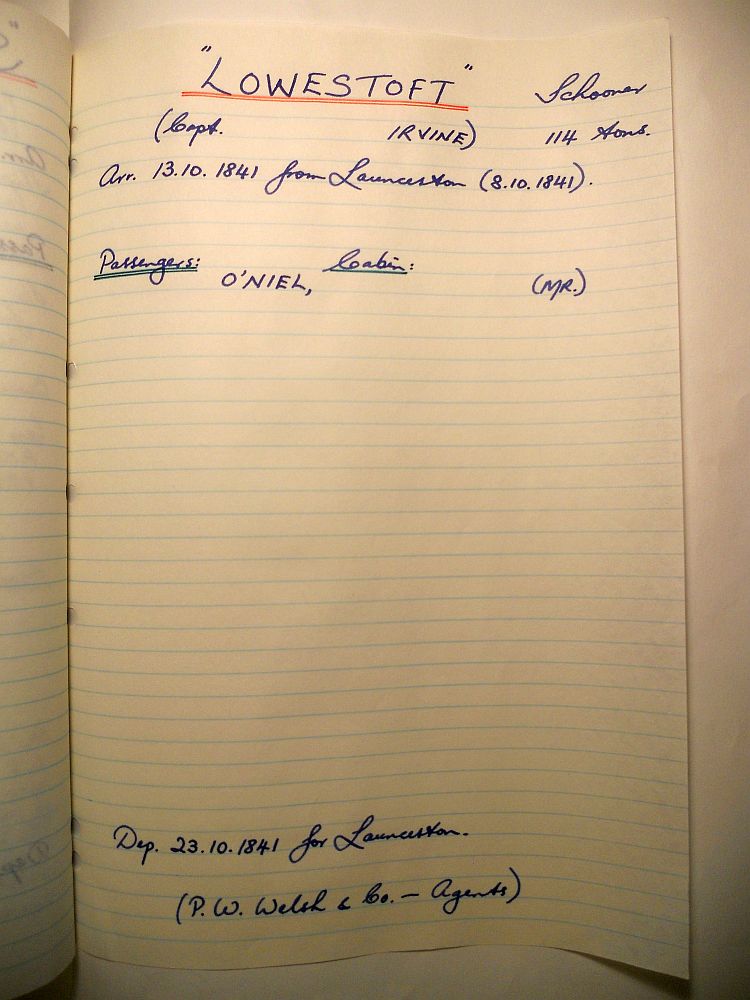 "LOWESTOFT" Schooner
(Capt. IRVINE) 114 tons.
Arr. 13.10.1841 from Launceston (8.10.1841).
Passengers: Cabin:
O'NIEL, (MR.)
Dep. 23.10.1841 for Launceston.
(P. W. Welsh & Co. — Agents)